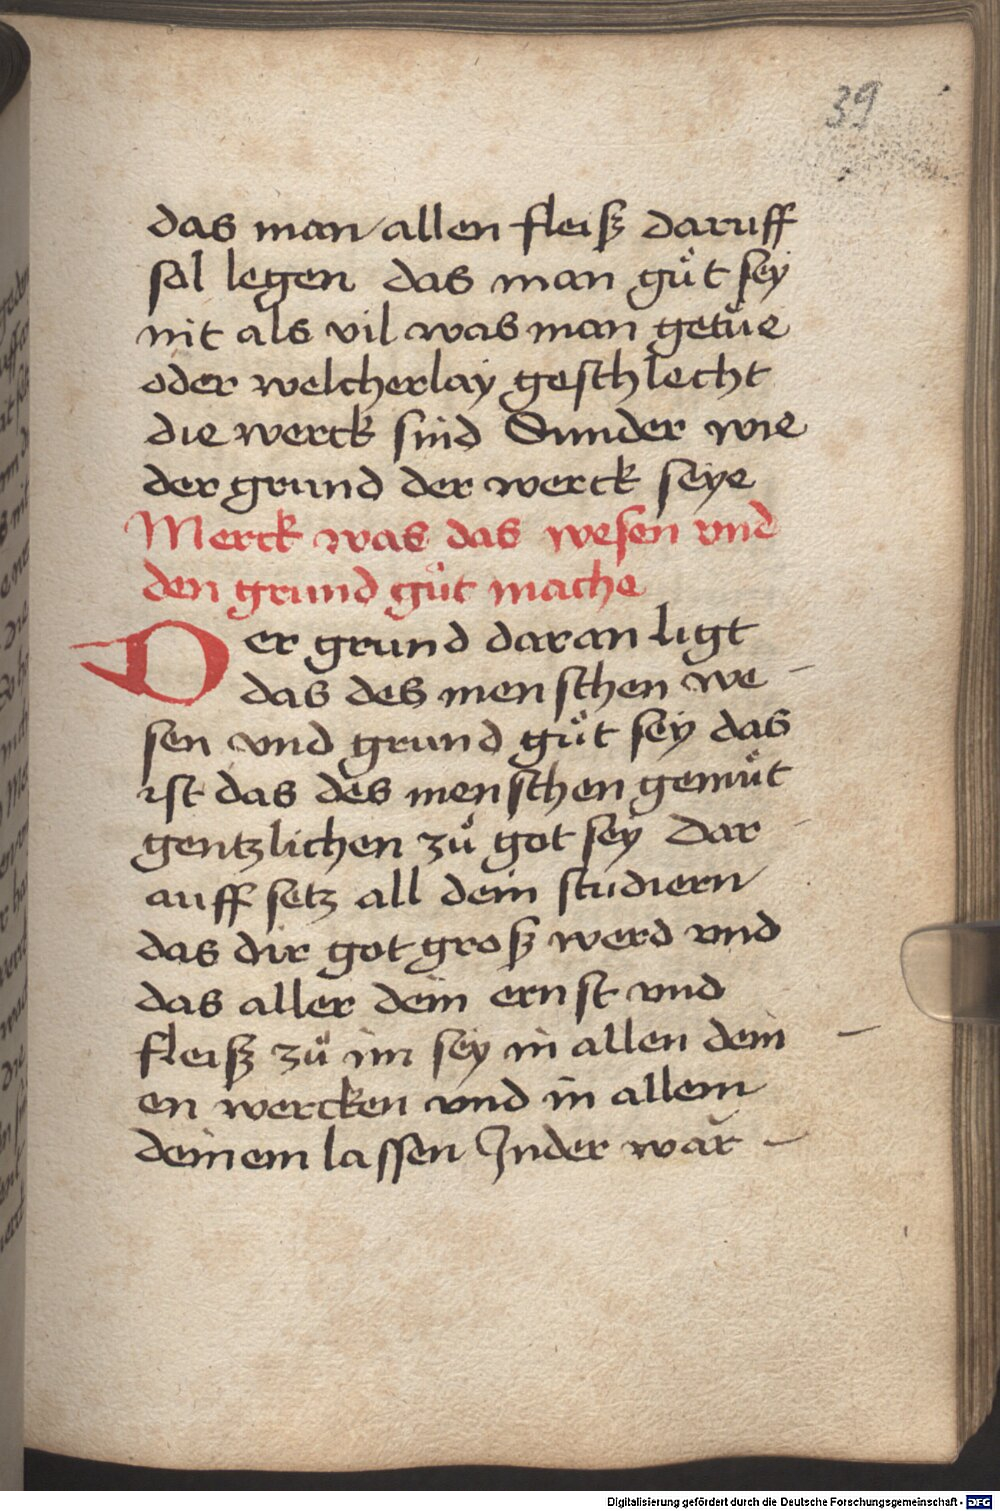 39
das man allen fleiß daruff
sol legen das man guͦt sey
nit als vil was man getuͤe
oder welcherlay geschlecht
die werck sind Sunder wie
der grund der werck seye
Merck was das wesen vnd
den grund guͦt mache
Der grund daran ligt
das des menschen we-
sen vnd grund guͦt sey das
ist das des menschen gemuͤt
gentzlichen zuͦ got sey Dar-
auff setz all dein studiern
das dir got groß werd vnd
das aller dein ernst vnd
fleiß zuͦ im sey in allen dein-
en wercken vnd in allem
deinem lassen Inder war-
Digitalisierung gefördert durch die Deutsche Forschungsgemeinschaft - DFG